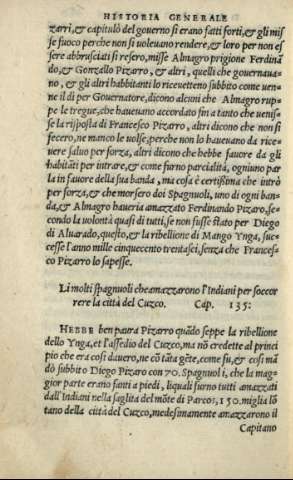 HISTORIA GENERALE
zarri, & capitulò del governo si erano fatti forti, & gli mis
se fuoco perche non si uoleuano rendere, & loro per non es
sere abbrusciati si resero, misse Almagro prigione Ferdinã
do, & Gonzallo Pizarro, & altri, quelli che governaua‑
no, & gli altri habbitanti lo riceuettono subbito come uen‑
ne il di per Governatore, dicono alcuni che Almagro rup‑
pe le tregue, che haueuano accordato fin a tanto che uenis‑
se la risposta di Francesco Pizarro, altri dicono che non si
fecero, ne manco le uolse, perche non lo haueuano da rice‑
uere saluo per forza, altri dicono che hebbe fauore da gli
habitãti per intrare, & come furno parcialità, ogniuno par
la in fauore della sua banda, ma cosa è certissima che intrò
per forza, & che morsero doi Spagnuoli, uno di ogni ban‑
da, & Almagro haueria amazzato Ferdinando Pizaro, se‑
condo la uolontà quasi di tutti, se non fusse stato per Diego
di Aluarado, questo, & la ribellione di Mango Ynga, suc‑
cesse l'anno mille cinquecento trentasei, senza che France‑
sco Pizarro lo sapesse.
Li molti spagnuoli che amazzarono l'Indiani per soccor
rere la città del Cuzco. Cap. 135:
HEBBE ben paura Pizarro quãdo seppe la ribellione
dello Ynga, et l'assedio del Cuzco, ma nõ credette al princi
pio che era cosi dauero, ne cõ tãta gẽte, come fu, & cosi mã
dò subbito Diego Pizaro con 70. Spagnuoli, che la mag‑
gior parte erano fanti a piedi, liquali furno tutti amazzati
dall'Indiani nella saglita del mõte di Parcos, 150. miglia lõ
tano della città del Cuzco, medesimamente amazzarono il
Capitano